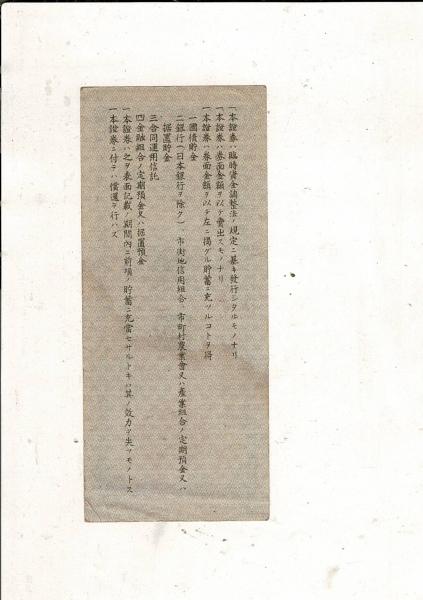 一本證券ハ臨時資金調整法ノ規定ニ基キ發行シタルモノナリ
一本證券ハ券面金額ヲ以テ賣出スモノナリ
一本證券ハ券面金額ヲ以テ左ニ揭グル貯蓄ニ充ツルコトヲ得
一國債貯金
二銀行(日本銀行ヲ除ク)、市街地信用組合、市町村農業會又ハ產業組合ノ定期預金又ハ
据置貯金
三合同運用信託
四金融組合ノ定期預金又ハ据置預金
一本證券ハ之ヲ表面記載ノ期間內ニ前項ノ貯蓄ニ充當セザルトキハ其ノ效力ヲ失フモノトス
一本證券ニ付テハ償還ヲ行ハズ